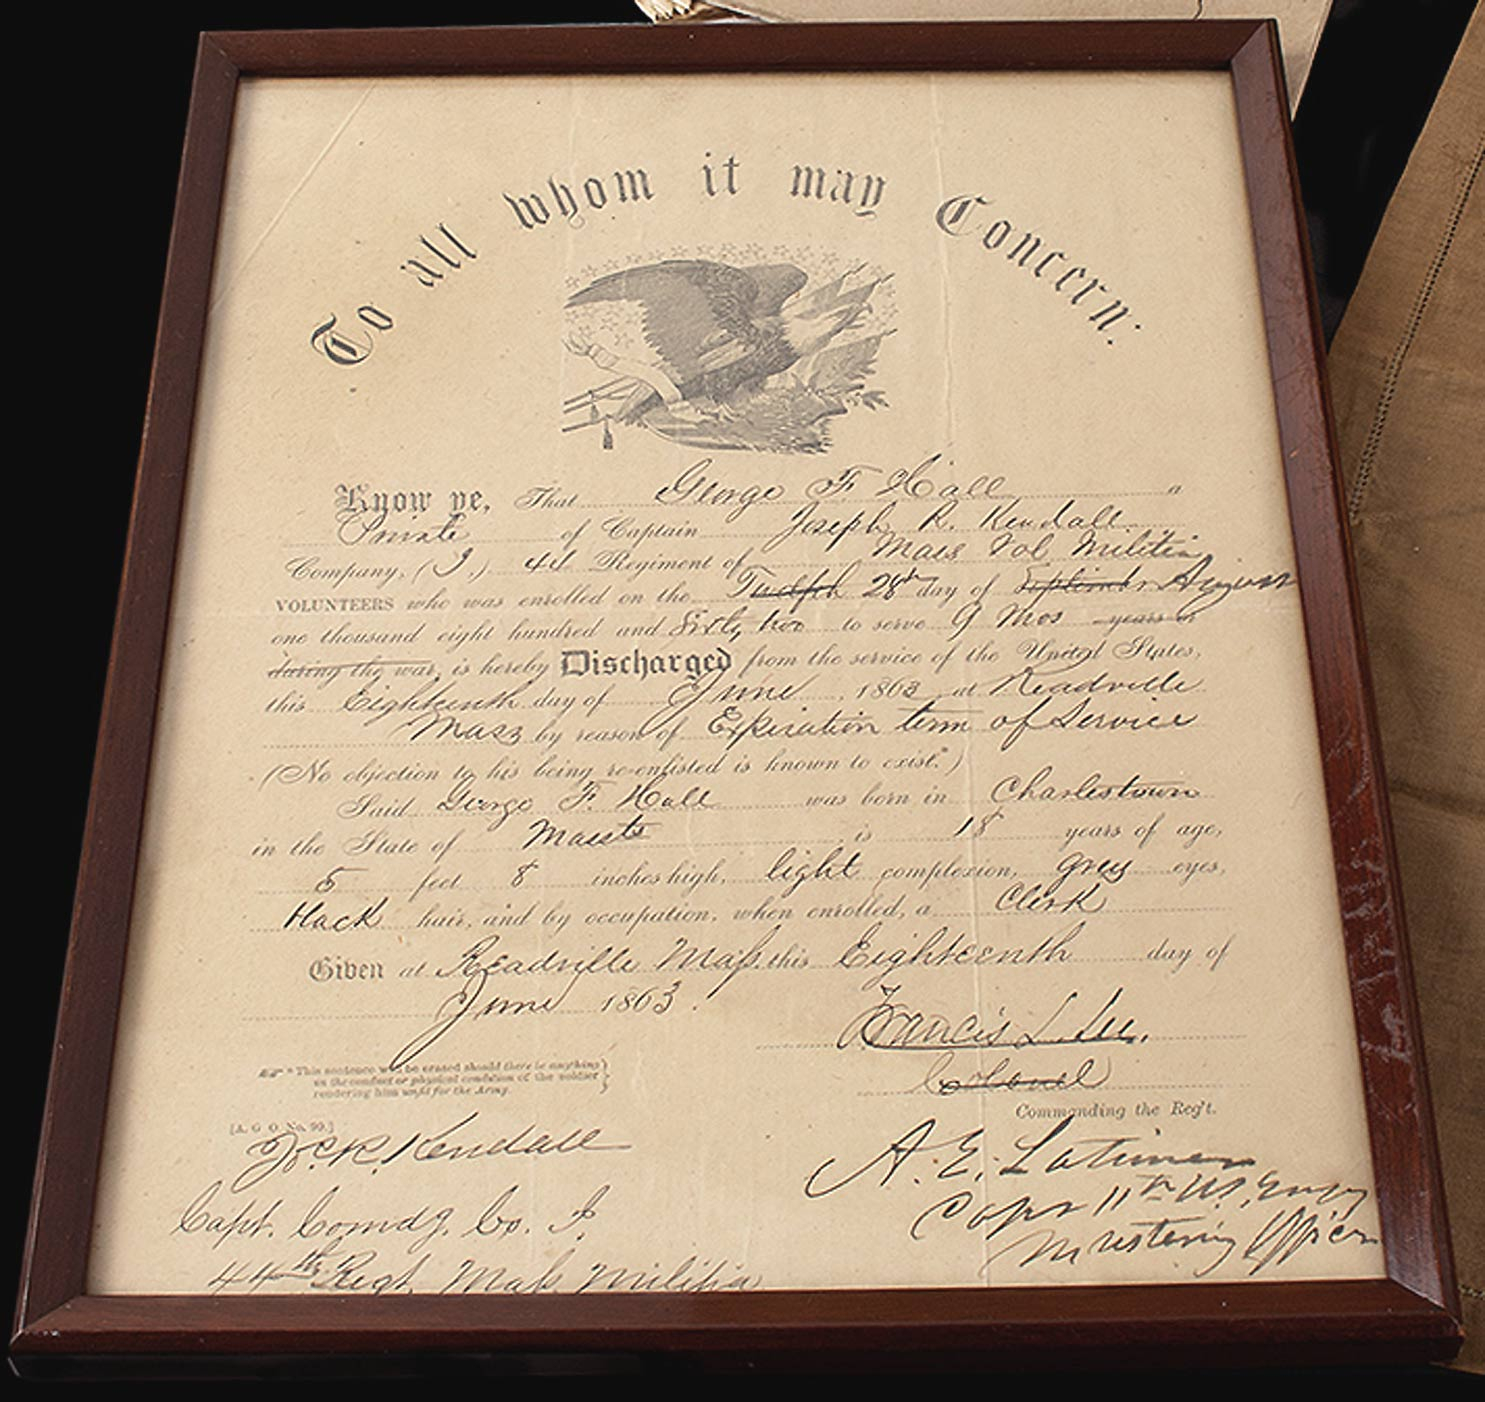 To all whom it may Concern:
Know ye, That George F. Hall a
Private of Captain Joseph R. Kendall
Company, (I.) 44 Regiment of Mass Vol Militia
VOLUNTEERS who was enrolled on the Twelfth 28th day of September August
one thousand eight hundred and Sixty two to serve 9 Mos years or
during the war, is hereby Discharged from the service of the United States,
this Eighteenth day of June, 1863 at Readville
Mass by reason of Expiration term of Service
(No objection to his being re-enlisted is known to exist.*)
Said George F. Hall was born in Charlestown
in the State of Massts is 18 years of age,
5 feet 8 inches high, light complexion, grey eyes,
black hair, and by occupation, when enrolled, a Clerk
Given at Readville Mass. this Eighteenth day of
June 1863.
Francis L. Lee.
Colonel
Commanding the Reg't.
* This sentence will be erased should there be anything
in the conduct or physical condition of the soldier
rendering him unfit for the Army.
[A. G. O. No. 99.]
Jos. R. Kendall
Capt. Comdg. Co. I.
44th Regt. Mass. Militia
A. E. Latimer
Capt 11th U.S. Infy
Mustering Officer